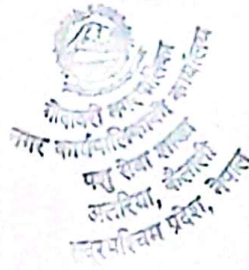 गोदावरी नगरपालिका
नगर कार्यपालिकाको कार्यालय
पशु सेवा शाखा
अत्तरिया, कैलाली
सुदूरपश्चिम प्रदेश, नेपाल